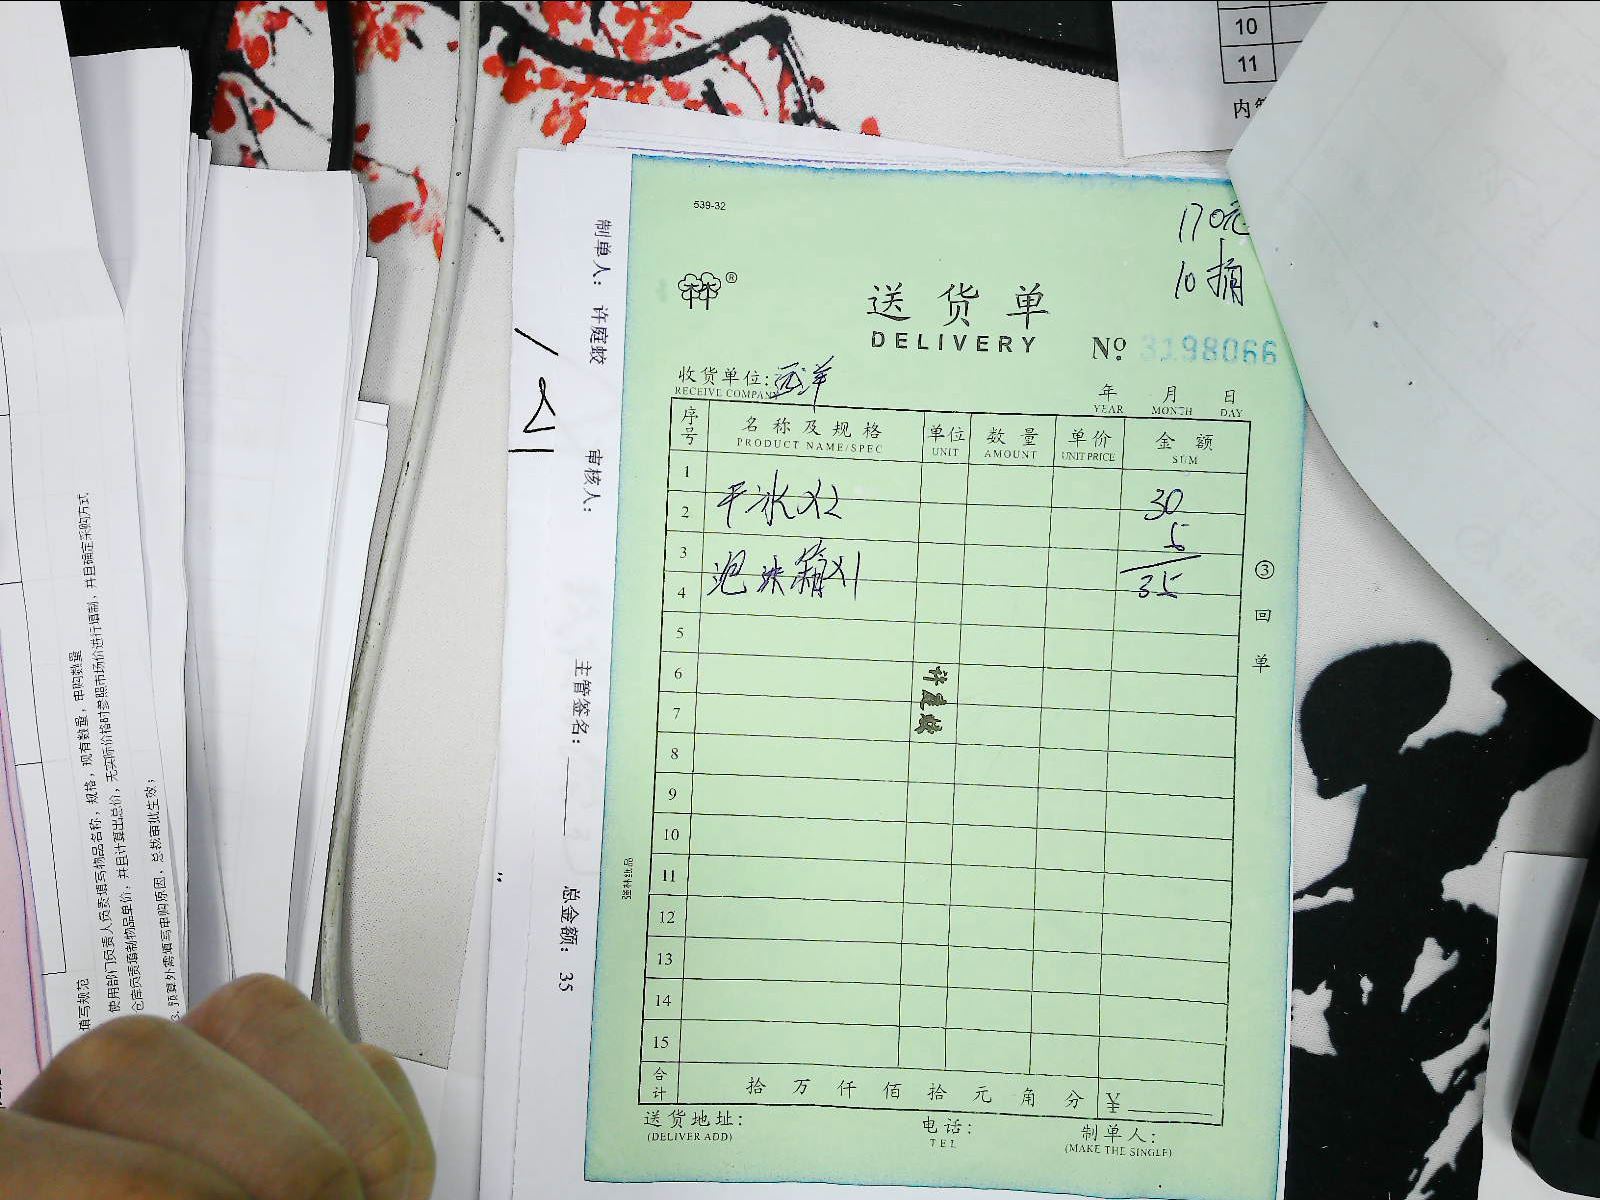 10
11
539-32
170元
10桶
送货单
DELIVERY
№ 3198066
收货单位: 远洋
RECEIVE COMPANY
年 月 日
YEAR MONTH DAY
序号 名称及规格 单位 数量 单价 金额
PRODUCT NAME/SPEC UNIT AMOUNT UNIT PRICE SUM
1
2 干冰X2 30
3 5
4 泡沫箱X1 35
5
6
7
8
9
10
11
12
13
14
15
合计 拾 万 仟 佰 拾 元 角 分 ¥
送货地址: 电话: 制单人:
(DELIVER ADD) TEL (MAKE THE SINGLE)
③回单
强林纸品
制单人: 许庭蛟 审核人: 主管签名: 总金额: 35
填写规范
使用部门负责人负责填写物品名称, 规格, 现有数量, 申购数量
仓库负责填制物品单价, 并且计算出总价, 无实际价格时参照市场价进行填制, 并且确定采购方式
3. 预算外需填写申购原因, 总裁审批生效;